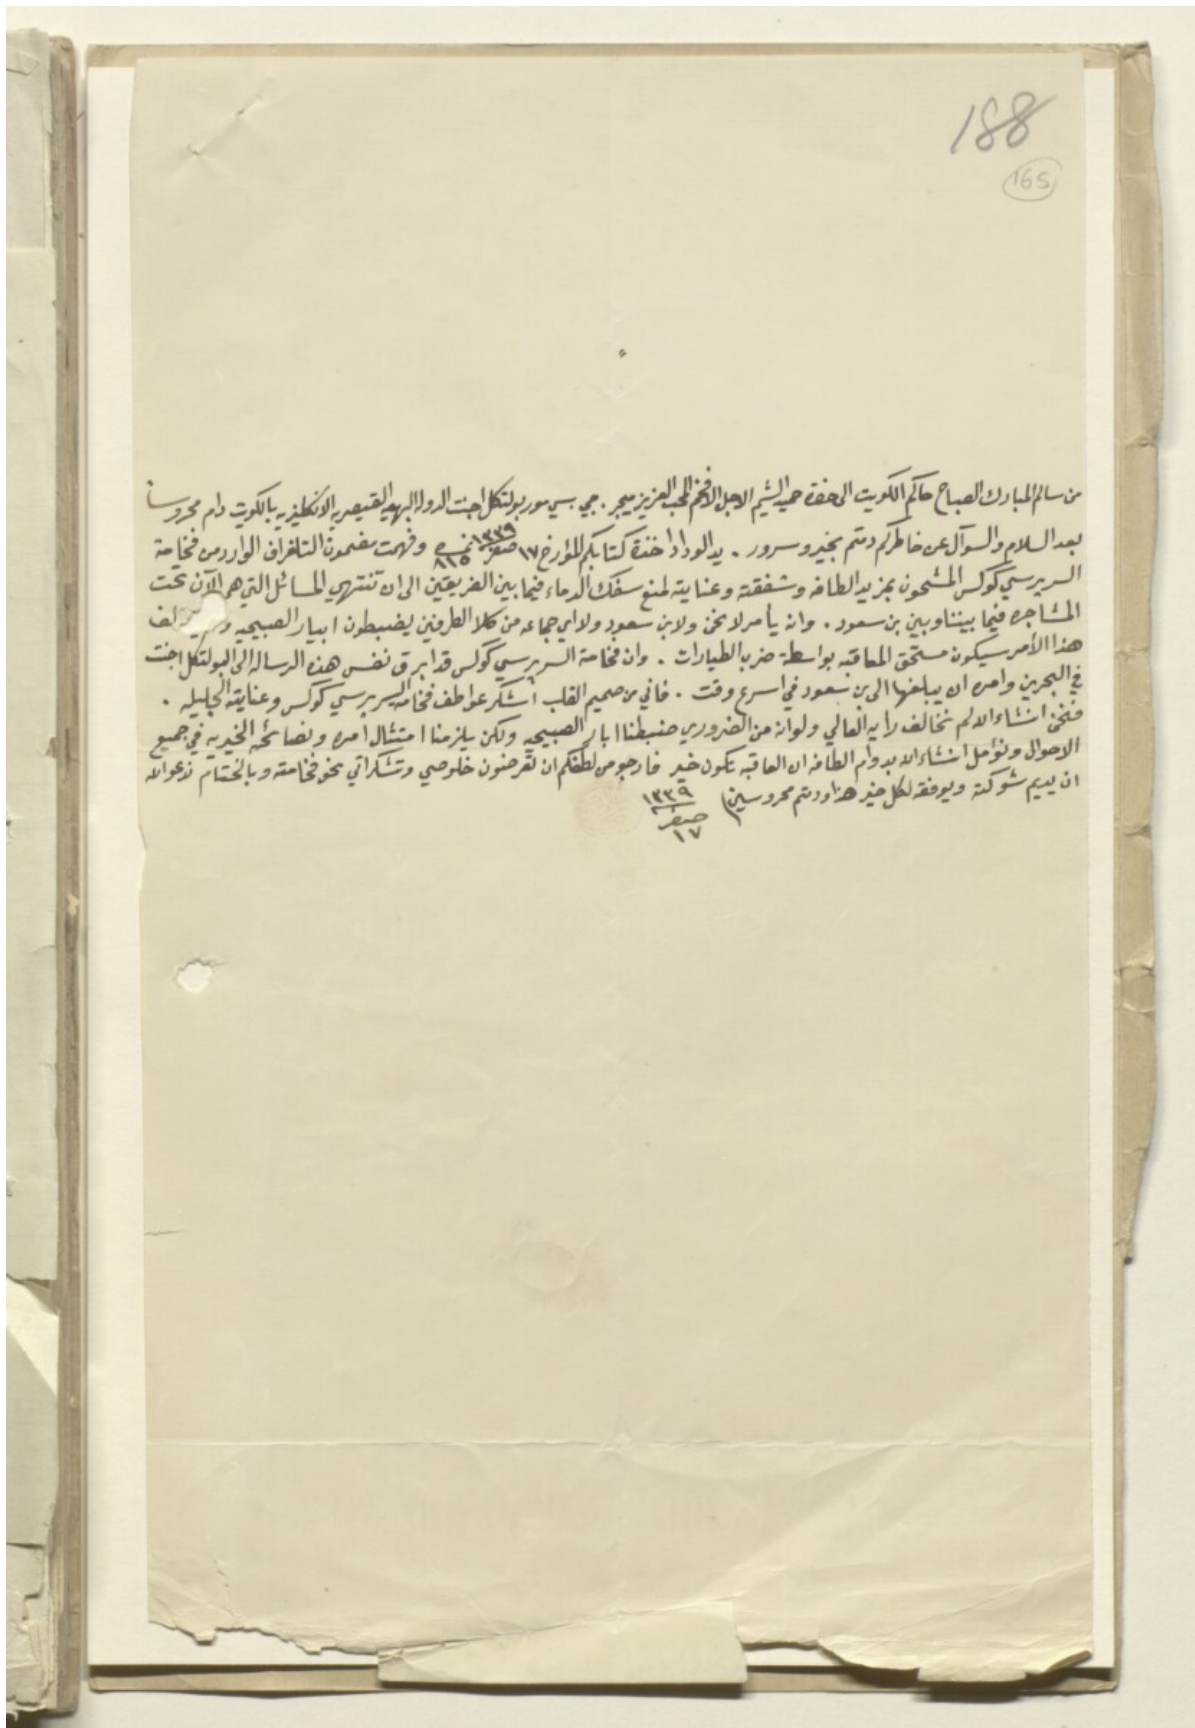 188
165
من سالم المبارك الصباح حاكم الكويت الى حضرة حميد الشيم الاجل الافخم المحب العزيز ميجر . جي . سي مور بولتكل اجنت الدولة البهيه القيصريه الانكليزيه بالكويت دام محروساً
بعد السلام والسوآل عن خاطركم دمتم بخير وسرور . يد الوداد اخذة كتابكم المؤرخ ١٧ صفر ١٣٣٩ نمره ٨١٥ وفهمت مضمون التلغراف الوارد من فخامة
السر برسي كوكس المشحون بمزيد الطافه وشفقته وعنايته لمنع سفك الدماء فيما بين الفريقين الى ان تنتهي المسائل التي هي الآن تحت
المشاجره فيما بيننا وبين بن سعود . وانه يأمر لا نحن ولا بن سعود ولا اي جماعه من كلا الطرفين يضبطون ابيار الصبيحيه
هذا الأمر سيكون مستحق المعاقبه بواسطة ضرب الطيارات . وان فخامة السر برسي كوكس قد ابرق نفس هذه الرساله الى البولتكل اجنت
في البحرين وامره ان يبلغها الى بن سعود في اسرع وقت . فاني من صميم القلب اشكر عواطف فخامة السر برسي كوكس وعنايته الجليله .
فنحن انشاء الله لم نخالف رايه العالي ولو انه من الضروري ضبطنا ابار الصبيحيه ولكن يلزمنا امتثال امره ونصائحه الخيريه في جميع
الاحوال ونؤمل انشاء الله بدوام الطافه ان العاقبه تكون خير فارجو من لطفكم ان تعرضون خلوصي وتشكراتي نحو فخامته وبالختام ندعو الله
ان يديم شوكته ويوفقه لكل خير هذا ودمتم محروسين
١٧ صفر ١٣٣٩